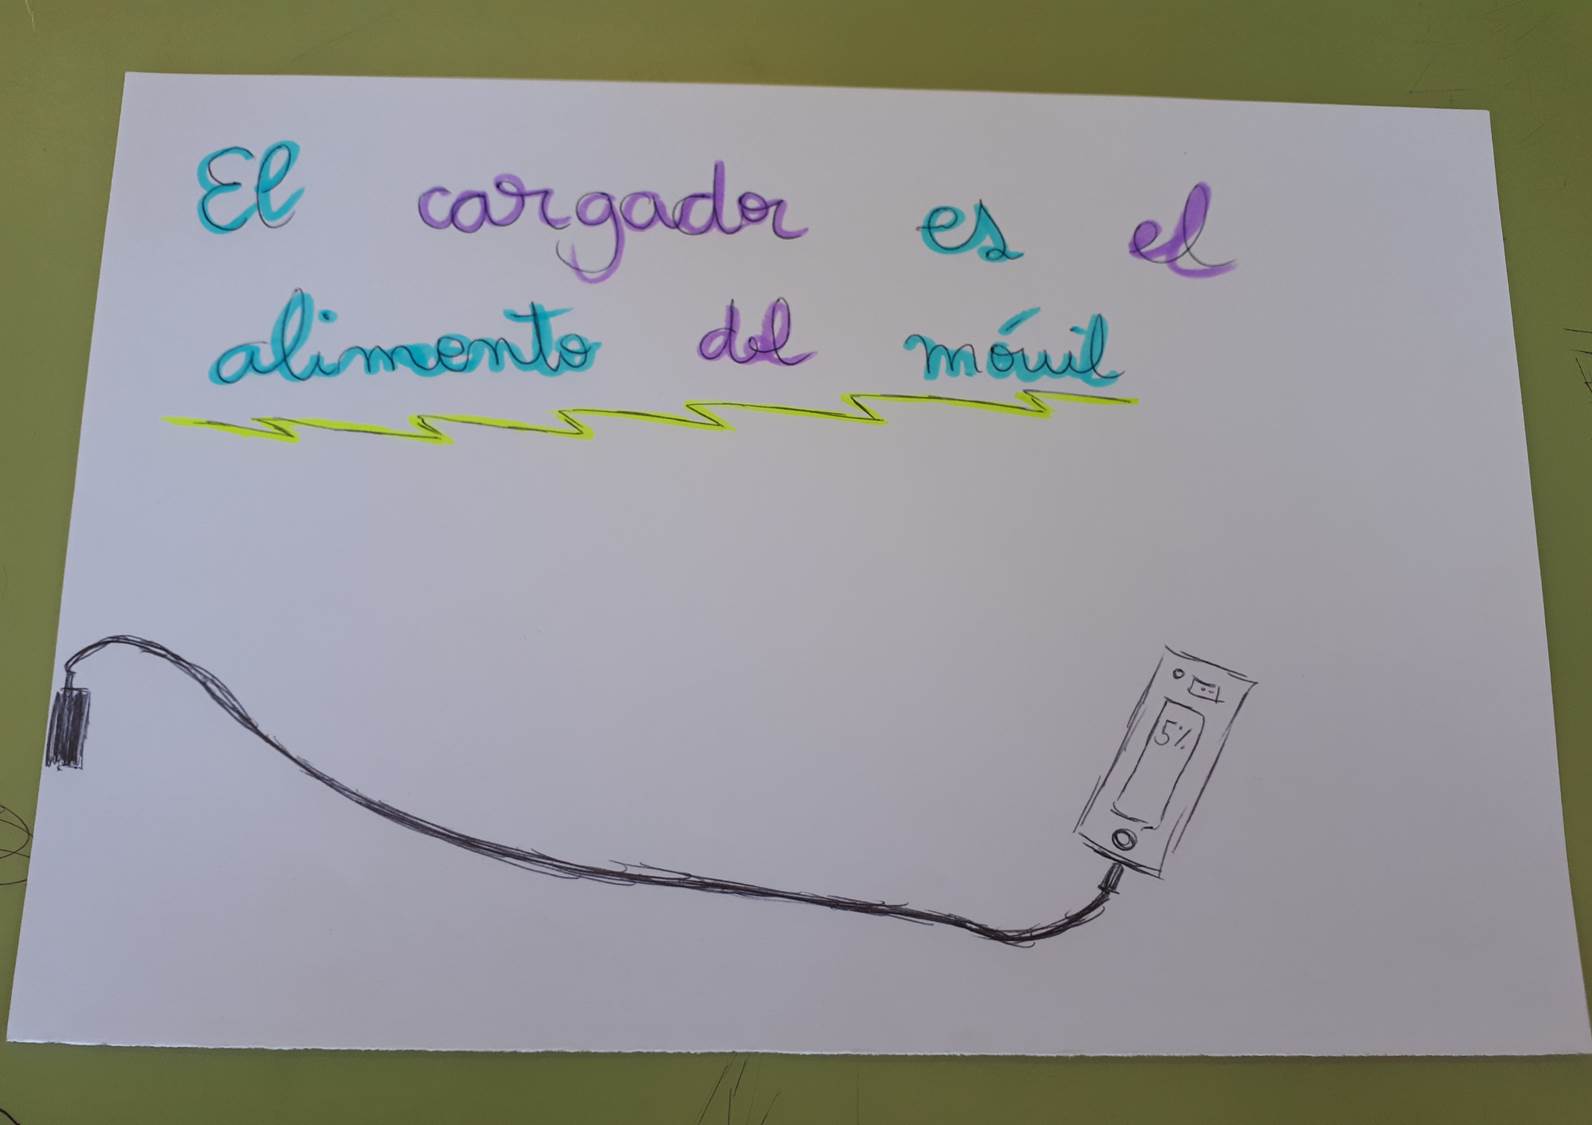 El cargador es el
alimento del móvil
5%